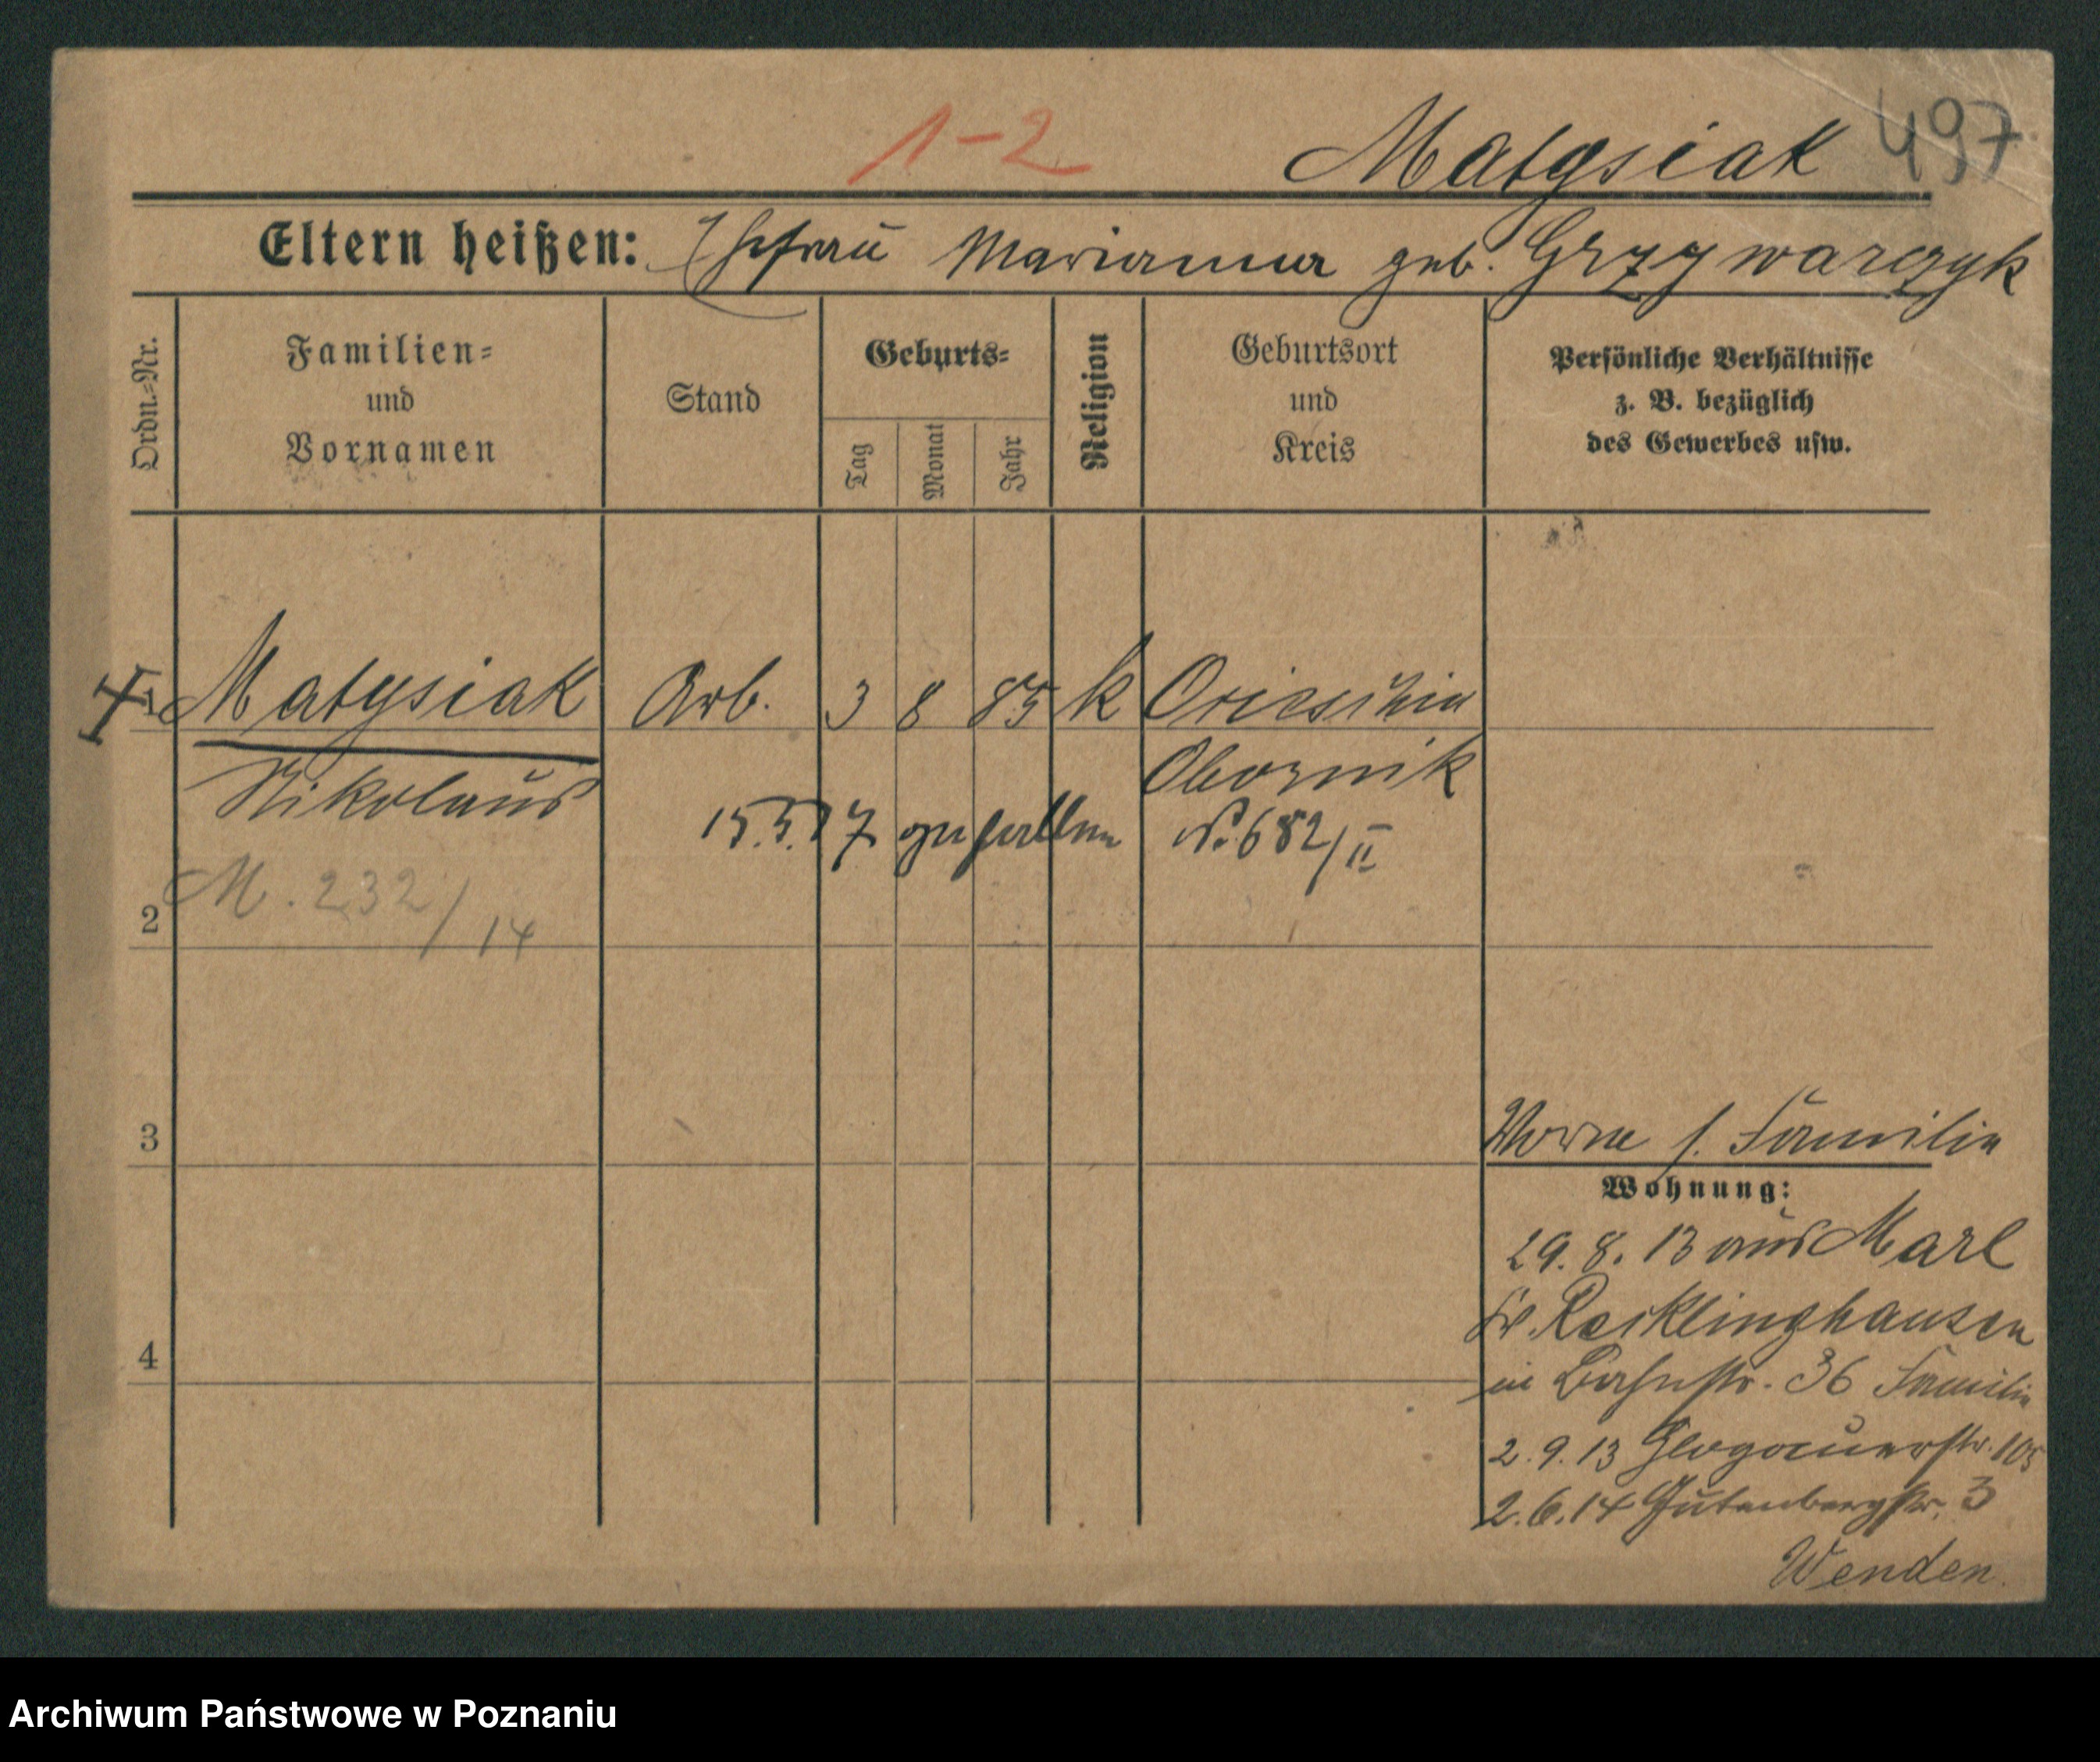 1-2 Matysiak 497
Eltern heißen: Ehefrau Marianna geb. Grzywarczyk
Ordn.=Nr.
Familien=
und
Vornamen
Stand
Geburts=
Tag
Monat
Jahr
Religion
Geburtsort
und
Kreis
Persönliche Verhältnisse
z. B. bezüglich
des Gewerbes usw.
1 Matysiak Arb. 3 8 85 k
Nikolaus Obornik
15.5.17 gefallen No 682/II
2 M. 232/14
3
s. Familie
Wohnung:
29.8.13 aus Marl
Kr. Recklinghausen
4
in Bahnstr. 36 Familie
2.9.13 Glogauerstr. 105
2.6.14 Gutenbergstr. 3
Wenden.
Archiwum Państwowe w Poznaniu